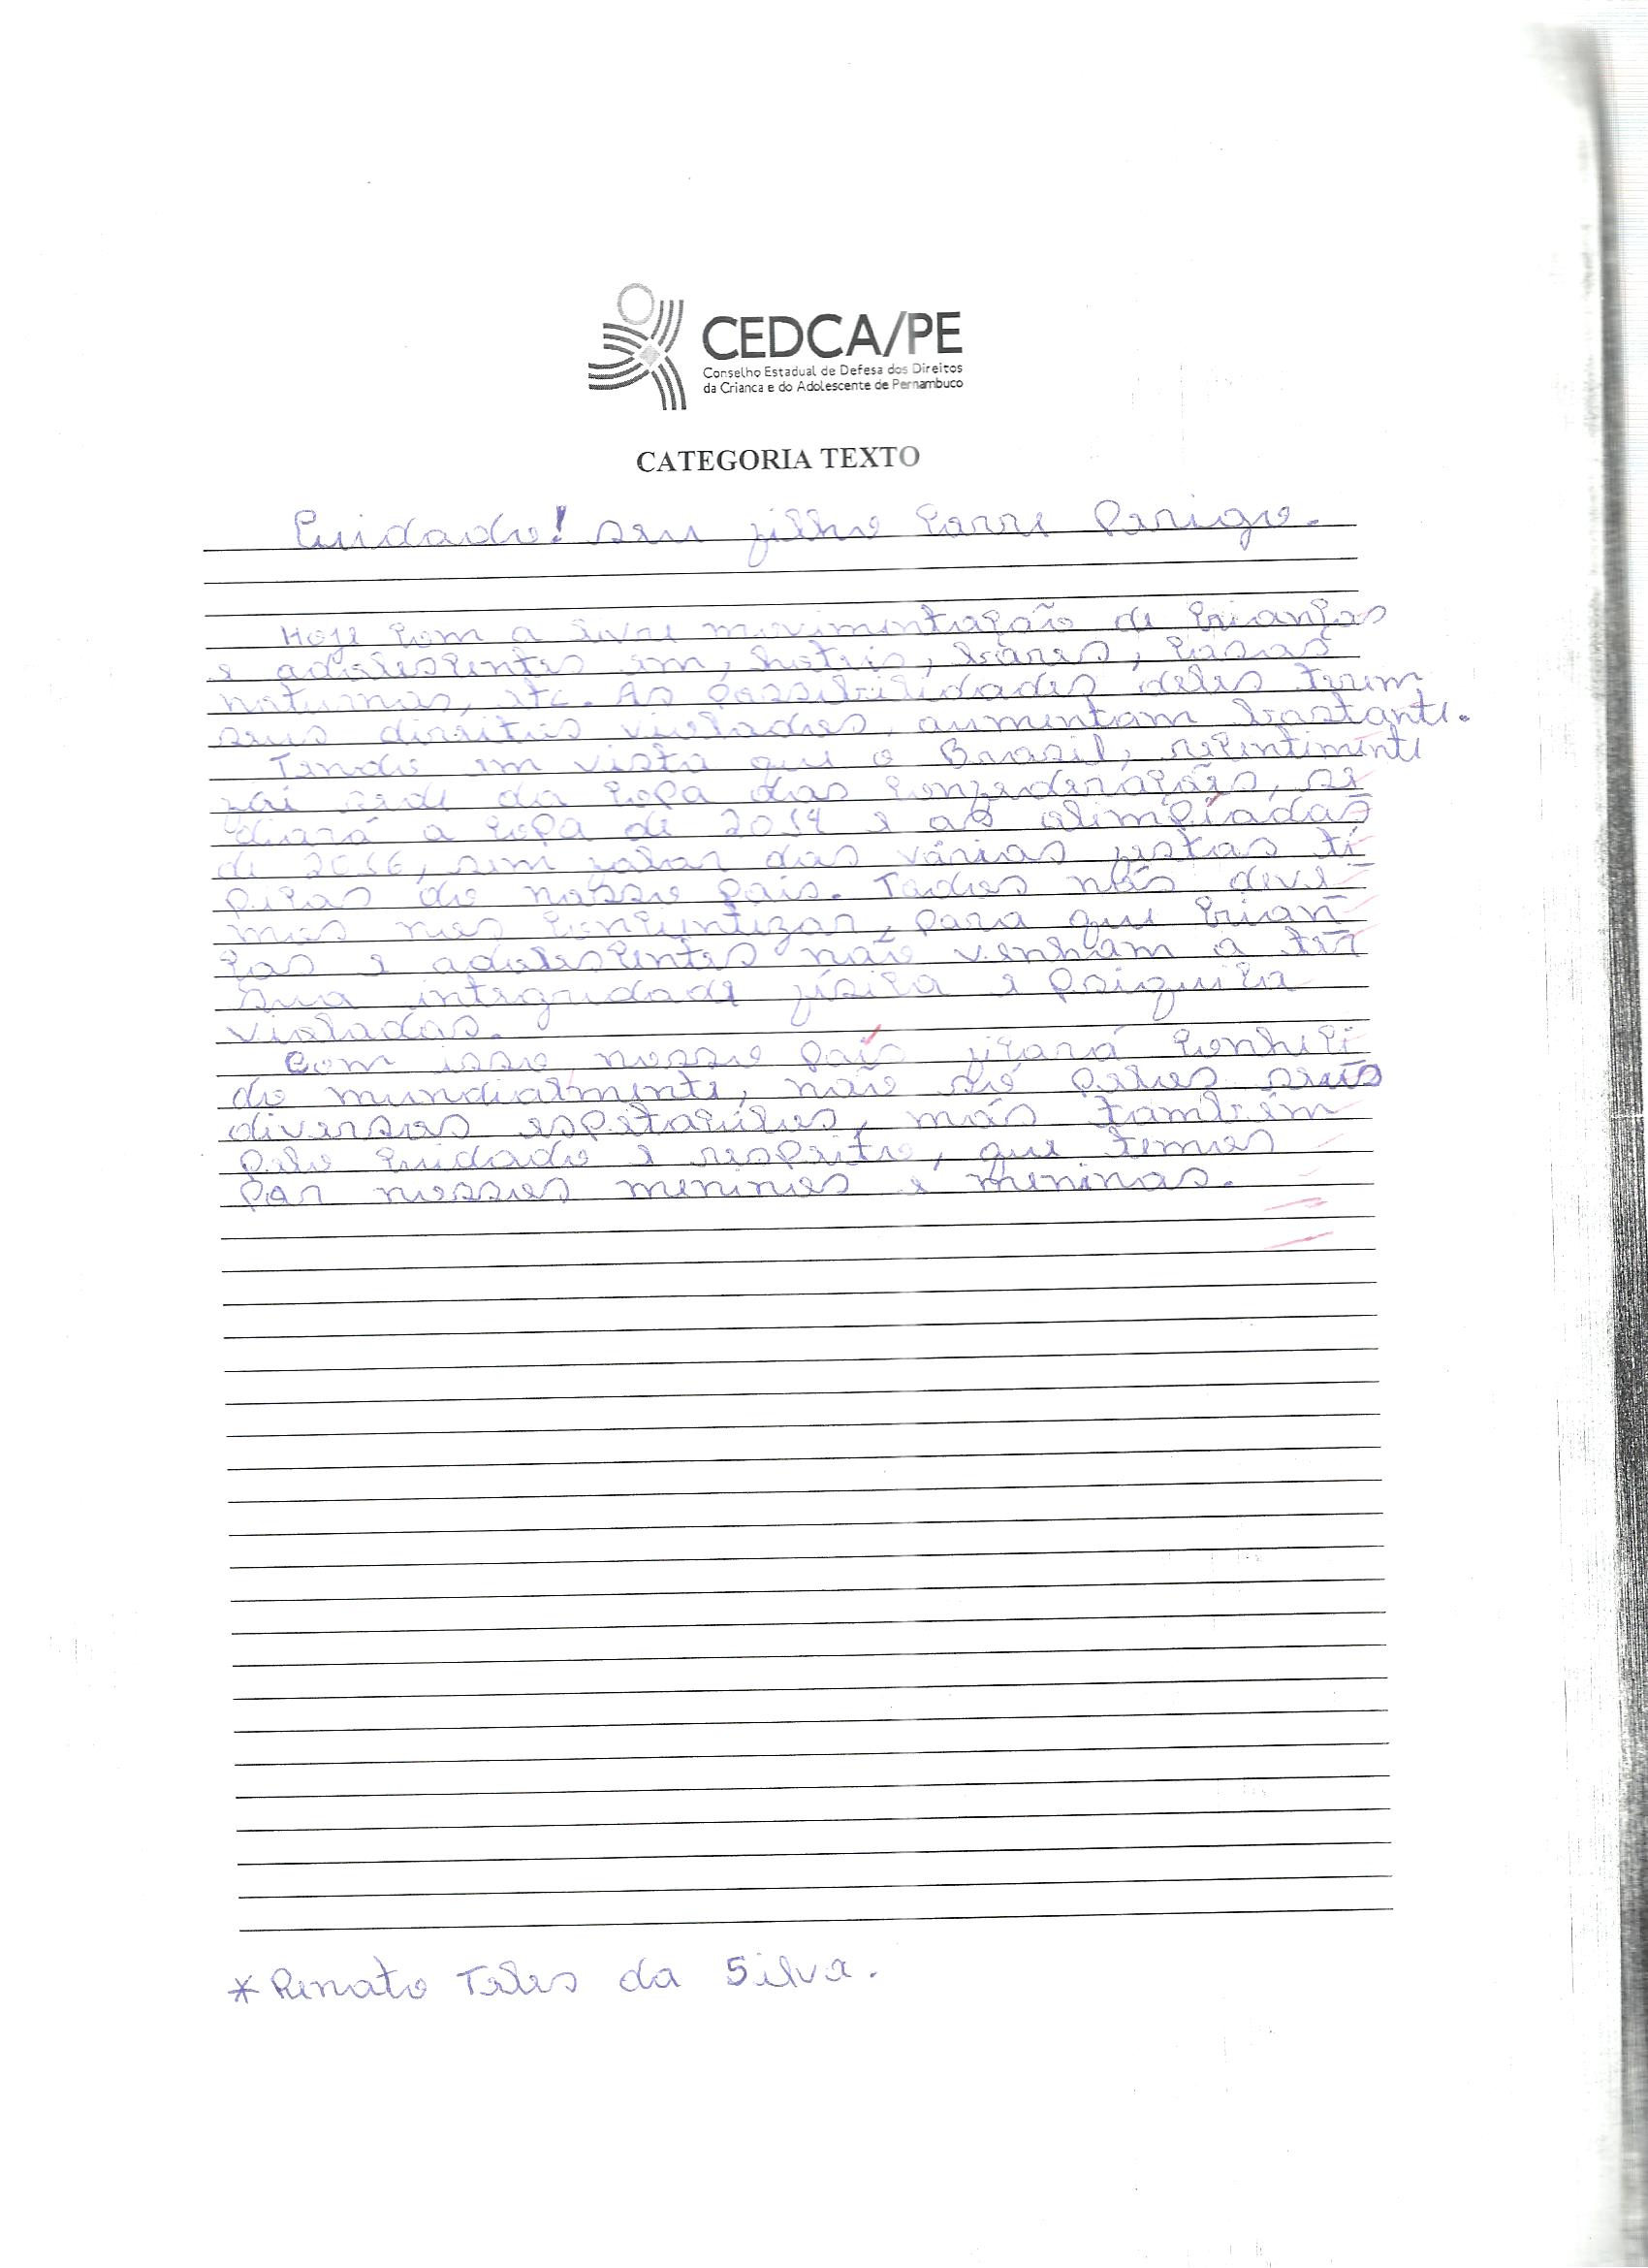 CEDCA/PE
Conselho Estadual de Defesa dos Direitos
da Criança e do Adolescente de Pernambuco
CATEGORIA TEXTO
Cuidado! seu filho corre Perigo.
Hoje com a livre movimentação de crianças
e adolescentes em, hoteis, bares, casas
noturnas, etc. As possibilidades deles terem
seus direitos violados, aumentam bastante.
Tendo em vista que o Brasil, recentimente
foi sede da copa das confederações, se
diará a copa de 2014 e as olimpíadas
de 2016, sem falar das várias festas tí
picas do nosso país. Todos nós deve
mos nos concientizar, para que crian
ças e adolescentes não venham a ter
sua integridade física e psiquica
violadas.
Com isso nosso país ficará conheci
do mundialmente, não só pelos seus
diversos espetacúlos, más também
pelo cuidado e respeito, que temos
por nossos meninos e meninas.
* Renato Teles da Silva.